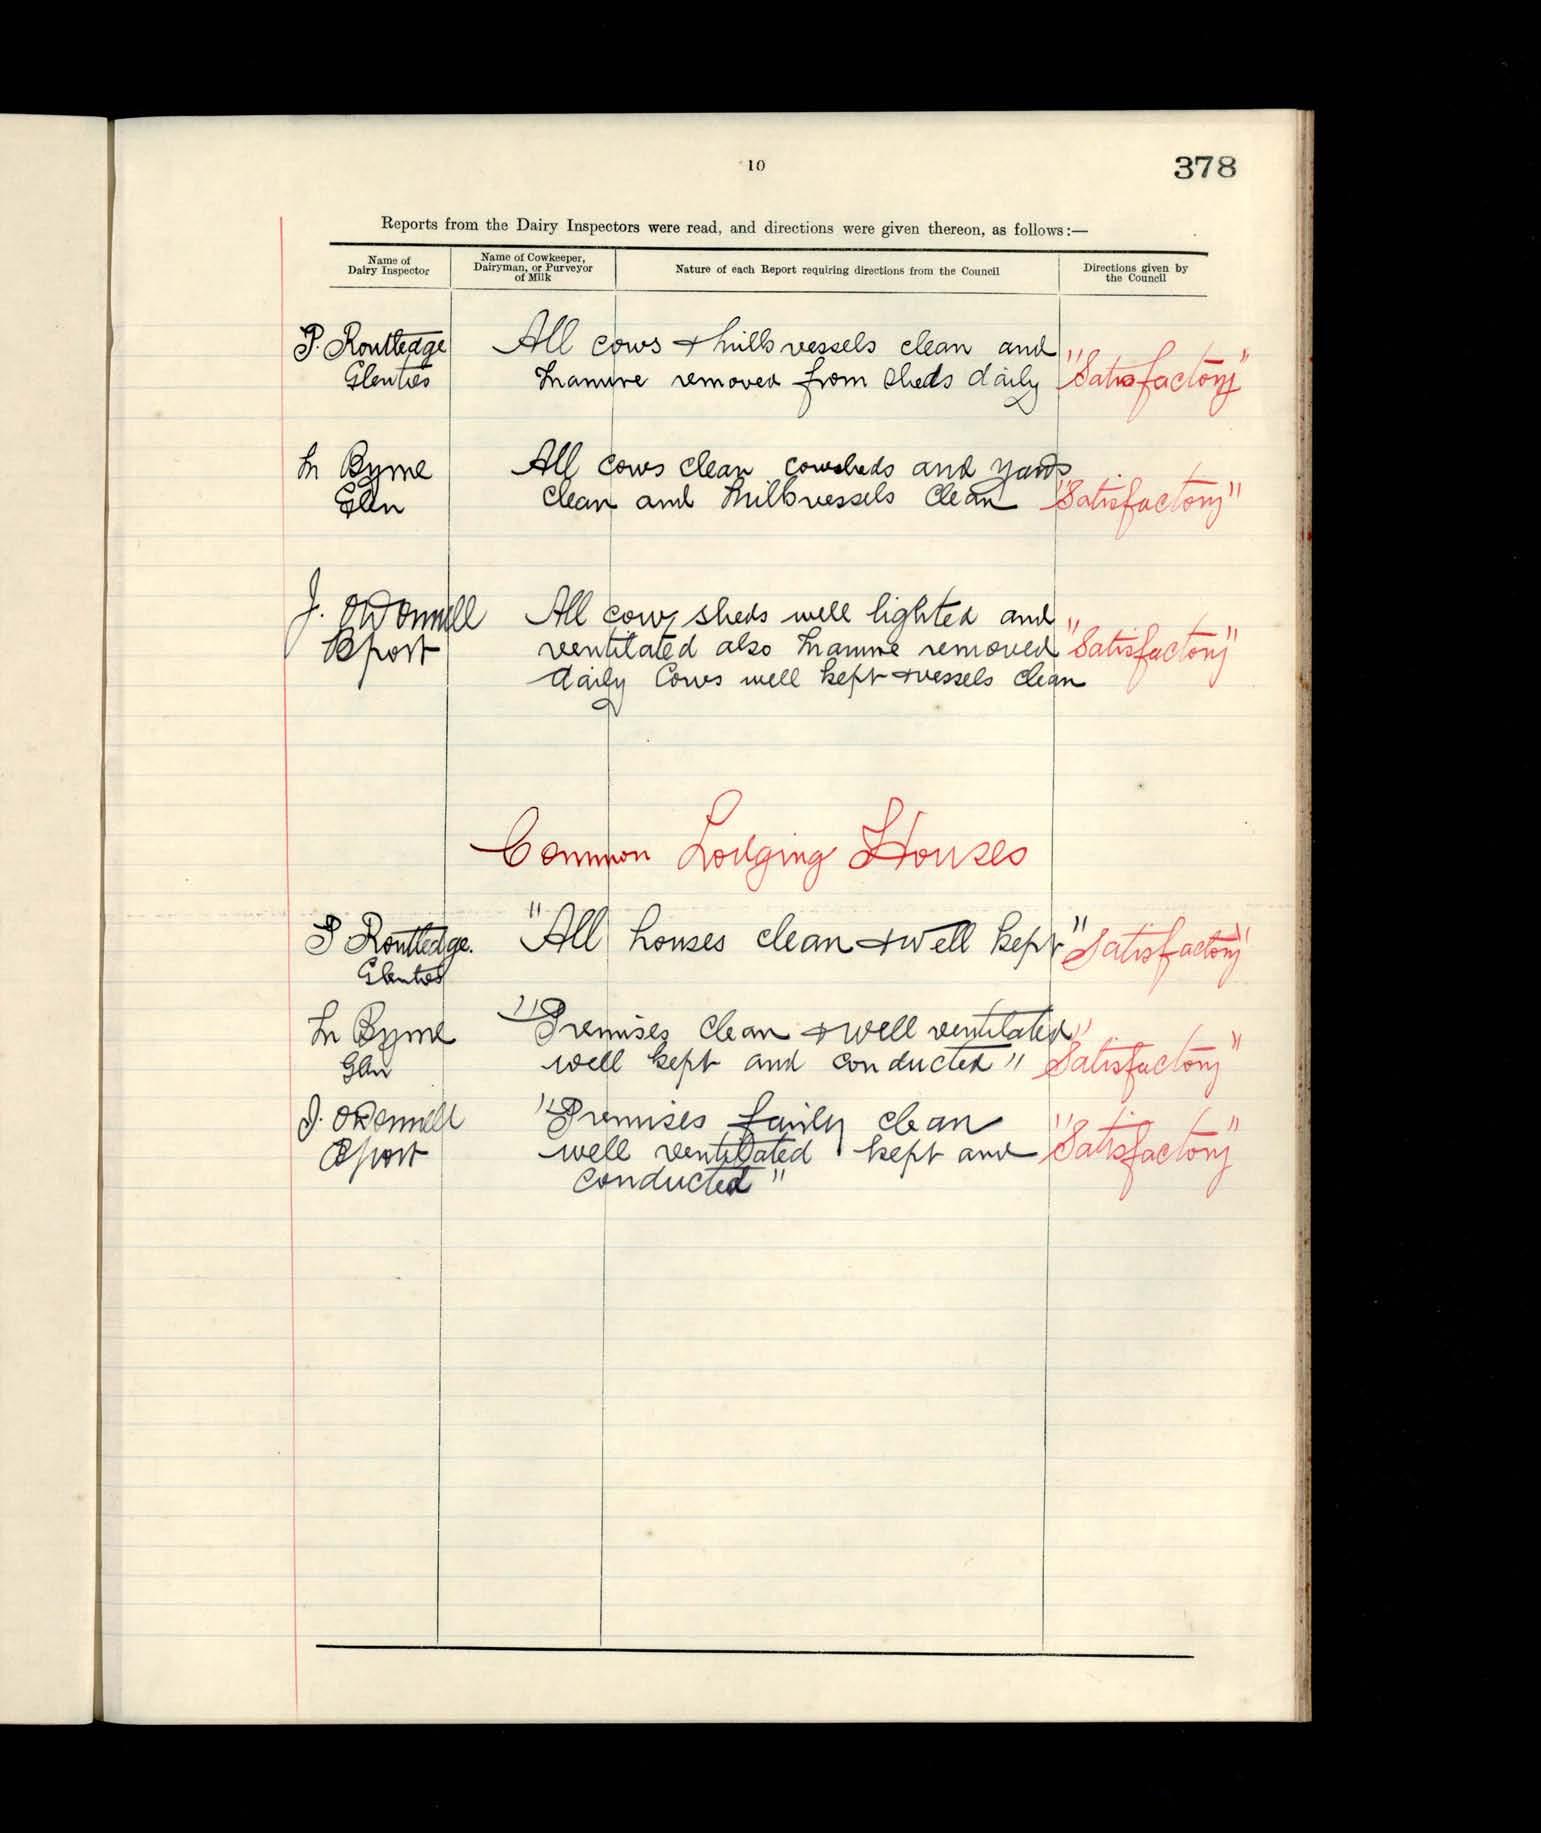 10
378
Reports from the Dairy Inspectors were read, and directions were given thereon, as follows:—
Name of
Dairy Inspector
Name of Cowkeeper,
Dairyman, or Purveyor
of Milk
Nature of each Report requiring directions from the Council
Directions given by
the Council
P. Routledge
Glenties
All cows + milk vessels clean and
manure removed from sheds daily
"Satisfactory"
M Byrne
Glen
All cows clean cowsheds and yards
clean and milk vessels clean
"Satisfactory"
J. O'Donnell
Bport
All cow sheds well lighted and
ventilated also manure removed
daily Cows well kept + vessels clean
"Satisfactory"
Common Lodging Houses
P Routledge.
Glenties
"All houses clean + well kept"
Satisfactory"
M Byrne
Glen
"Premises clean + well ventilated
well kept and conducted"
"Satisfactory"
J. O'Donnell
Bport
"Premises fairly clean
well ventilated kept and
conducted"
"Satisfactory"